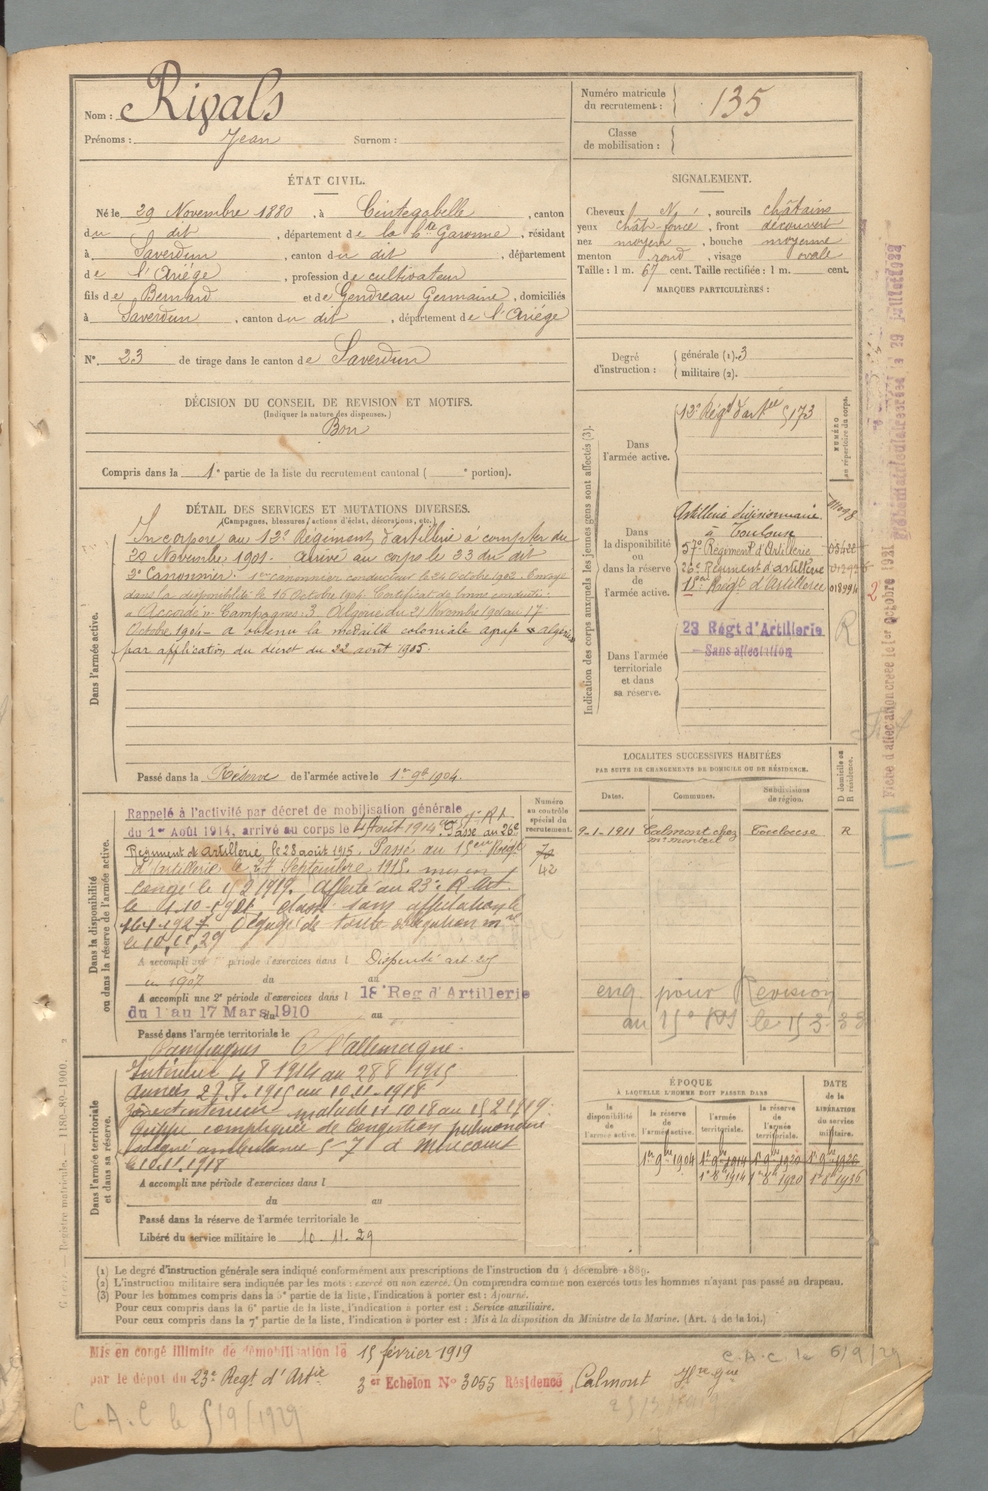 Nom : Rivals
Prénoms : Jean Surnom :
ÉTAT CIVIL.
Né le 29 Novembre 1880, à Cintegabelle, canton
du dit, département de la Hte Garonne, résidant
à Saverdun, canton du dit, département
de l'Ariège, profession de cultivateur
fils de Bernard et de Gendreau Germaine, domiciliés
à Saverdun, canton du dit, département de l'Ariège
N° 23 de tirage dans le canton de Saverdun
DÉCISION DU CONSEIL DE REVISION ET MOTIFS.
(Indiquer la nature des dispenses.)
Bon
Compris dans la 1e partie de la liste du recrutement cantonal ( e portion).
DÉTAIL DES SERVICES ET MUTATIONS DIVERSES.
(Campagnes, blessures, actions d'éclat, décorations, etc.)
Dans l'armée active.
Incorporé au 12e Régiment d'artillerie à compter du
Novembre 1901. Arrivé au corps le 23 du dit
2e Canonnier. 1er canonnier conducteur le 24 Octobre 1902. Envoyé
dans la disponibilité le 16 Octobre 1904. Certificat de bonne conduite
"Accordé". Campagnes: 3 Algérie du 21 Novembre 1901 au 17
Octobre 1904 - a obtenu la médaille coloniale agrafe Algérie
par application du décret du 22 août 1905.
Passé dans la Réserve de l'armée active le 1er 9bre 1904.
Dans la disponibilité
ou dans la réserve de l'armée active.
Rappelé à l'activité par décret de mobilisation générale
du 1er Août 1914, arrivé au corps le 4 Août 1914. Passé au 26e
Régiment d'Artillerie le 28 août 1915. Passé au 15eme Regt
d'Artillerie le 27 Septembre 1915. mis en
congé le 15 2 1919. Affecté au 23e R. Art.
le 1-10-1921 classé sans affectation le
1927 Dégagé de toute obligation mre
le 10.11.29
A accompli une 1e période d'exercices dans l Dispensé art. 25
en 1907 du au
A accompli une 2e période d'exercices dans l 18e Reg d'Artillerie
du 1 au 17 Mars 1910 au
Passé dans l'armée territoriale le
Campagnes C l'allemagne.
Dans l'armée territoriale
et dans sa réserve.
Intérieur 4 8 1914 au 28 8 1915
Armées 29.8.1915 au 10.11.1918
Zone intérieur malade 11 10 18 au 15 2 1919.
Grippe compliquée de congestion pulmonaire
soigné ambulance 5-7 à Mirecourt
le 10.11.1918
A accompli une période d'exercices dans l
du au
Passé dans la réserve de l'armée territoriale le
Libéré du service militaire le 10-11-29
Numéro
au contrôle
spécial du
recrutement.
70
42
Numéro matricule
du recrutement : 135
Classe
de mobilisation :
SIGNALEMENT.
Cheveux N., sourcils châtains
yeux chât. foncé, front découvert
nez moyen, bouche moyenne
menton rond, visage ovale
Taille : 1 m. 67 cent. Taille rectifiée : 1 m. cent.
MARQUES PARTICULIÈRES :
Degré
d'instruction :
générale (1). 3
militaire (2).
Indication des corps auxquels les jeunes gens sont affectés (3).
NUMÉRO
au répertoire du corps.
Dans
l'armée active.
12e Régt d'artrie 5173
Dans
la disponibilité
ou
dans la réserve
de
l'armée active.
Artillerie divisionnaire
à Toulouse
57e Régiment d'Artillerie
26e Régiment d'artillerie
15eme Régt d'Artillerie 018994
Dans l'armée
territoriale
et dans
sa réserve.
23 Régt d'Artillerie
Sans affectation
R
LOCALITÉS SUCCESSIVES HABITÉES
PAR SUITE DE CHANGEMENTS DE DOMICILE OU DE RÉSIDENCE.
Dates. Communes. Subdivisions de région. D domicile ou R résidence.
9-1-1911 Calmont chez Toulouse R
enq. pour Revision
ÉPOQUE
À LAQUELLE L'HOMME DOIT PASSER DANS
DATE
de la
LIBÉRATION
du service
militaire.
la disponibilité de l'armée active. la réserve de l'armée active. l'armée territoriale. la réserve de l'armée territoriale.
1er 9bre 1904 1er 9bre 1914 1er 9bre 1920 1er 9bre 1926
1er 8bre 1914 1er 8bre 1920 1er 8bre 1936
Fiche d'affectation créée le 1er Octobre 1921
(1) Le degré d'instruction générale sera indiqué conformément aux prescriptions de l'instruction du 4 décembre 1889.
(2) L'instruction militaire sera indiquée par les mots : exercé ou non exercé. On comprendra comme non exercés tous les hommes n'ayant pas passé au drapeau.
(3) Pour les hommes compris dans la 5e partie de la liste, l'indication à porter est : Ajourné.
Pour ceux compris dans la 6e partie de la liste, l'indication à porter est : Service auxiliaire.
Pour ceux compris dans la 7e partie de la liste, l'indication à porter est : Mis à la disposition du Ministre de la Marine. (Art. 4 de la loi.)
Registre matricule. — 1180-89-1900.
Mis en congé illimité de démobilisation le 15 février 1919
par le dépot du 23e Regt d'Artie 3er Echelon N° 3055 Résidence Calmont Hte Gne
C.A.C. le 6/9/29
C.A.C le 5/9/1929